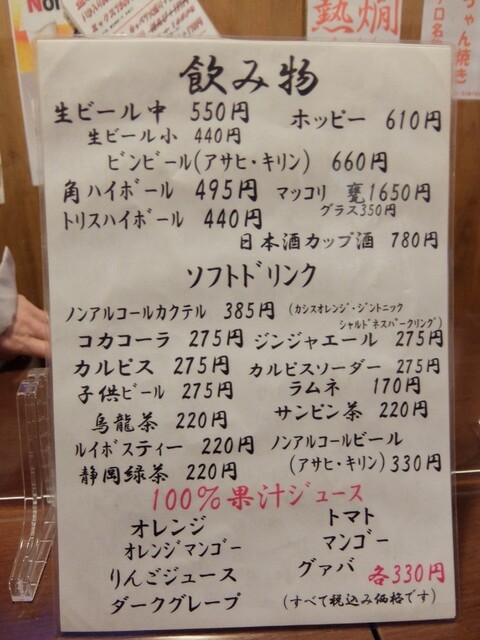 飲み物
生ビール中 550円
ホッピー 610円
生ビール小 440円
ビンビール(アサヒ・キリン) 660円
角ハイボール 495円
マッコリ 甕1650円
グラス350円
トリスハイボール 440円
日本酒カップ酒 780円
ソフトドリンク
ノンアルコールカクテル 385円 (カシスオレンジ・ジントニック
シャルドネスパークリング)
コカコーラ 275円 ジンジャエール 275円
カルピス 275円 カルピスソーダー 275円
子供ビール 275円 ラムネ 170円
烏龍茶 220円 サンピン茶 220円
ルイボスティー 220円 ノンアルコールビール
静岡緑茶 220円 (アサヒ・キリン) 330円
100%果汁ジュース
オレンジ トマト
オレンジマンゴー マンゴー
りんごジュース グァバ 各330円
ダークグレープ (すべて税込み価格です)
熱燗
ちゃん焼き